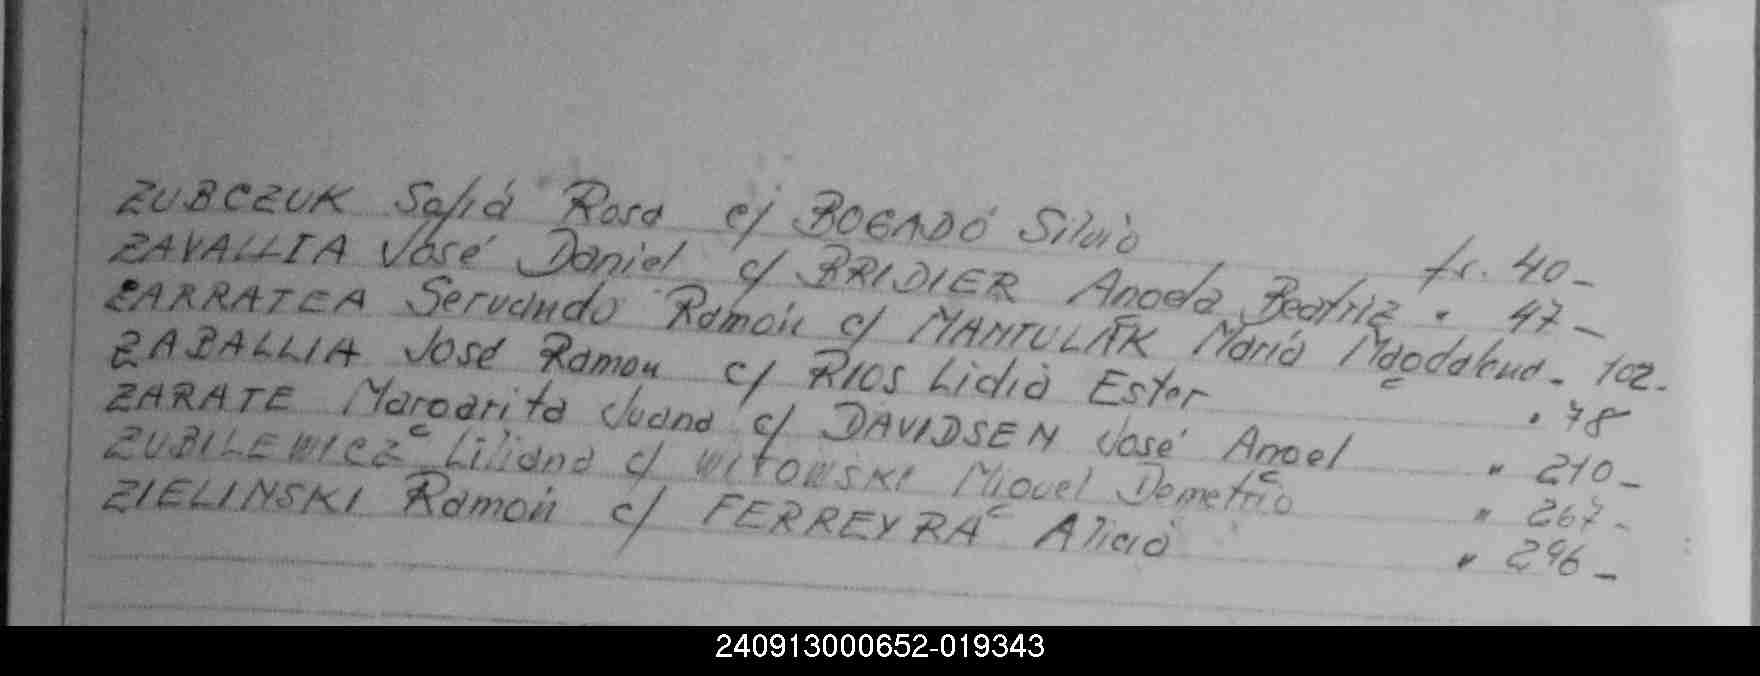 ZUBCZUK Sofiá Rosa c/ BOGADO Silvio fs. 40-
ZAVALLIA José Daniel c/ BRIDIER Angela Beatriz " 47-
ZARRATEA Servando Ramón c/ MANTULAK María Magdalena - 102-
ZABALLIA José Ramon c/ RIOS Lidia Ester " 78
ZARATE Margarita Juana c/ DAVIDSEN José Angel " 210-
ZUBILEWICZ Liliana c/ WITOWSKI Miguel Demetrio " 267-
ZIELINSKI Ramón c/ FERREYRA Alicia " 296-
240913000652-019343